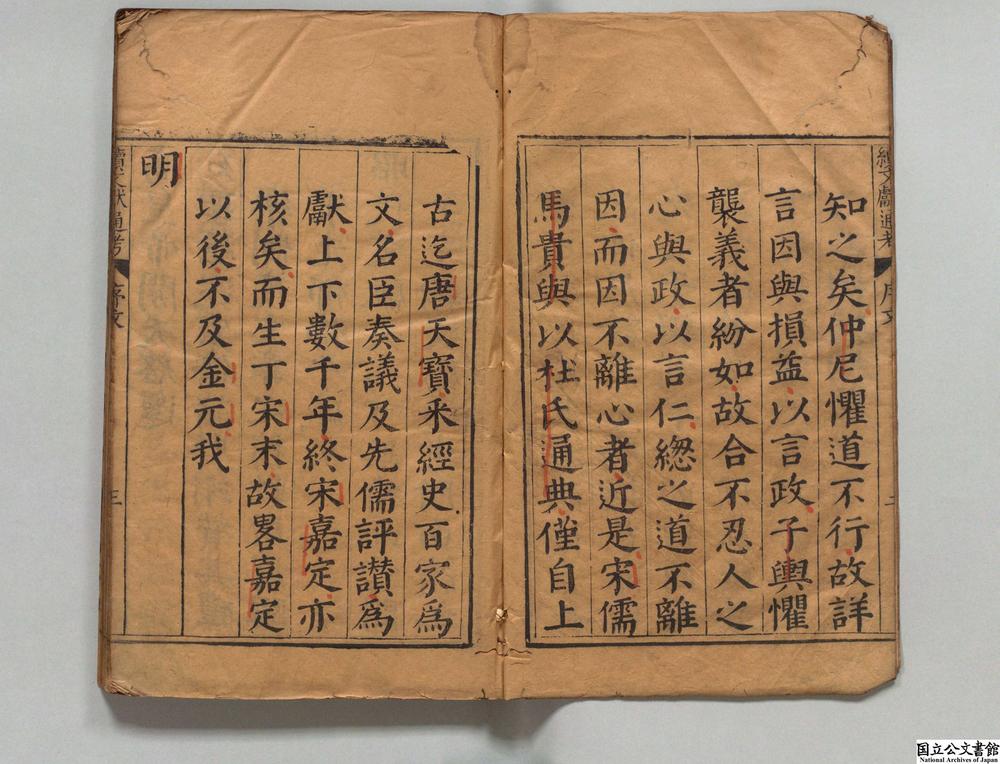 續文獻通考 序文 二
知之矣仲尼懼道不行故詳
言因與損益以言政子輿懼
襲義者紛如故合不忍人之
心與政以言仁緫之道不離
因而因不離心者近是宋儒
馬貴與以杜氏通典僅自上
古迄唐天寳釆經史百家爲
文名臣奏議及先儒評讃爲
獻上下數千年終宋嘉定亦
核矣而生丁宋末故畧嘉定
以後不及金元我
明
續文獻通考 序文 三
国立公文書館
National Archives of Japan